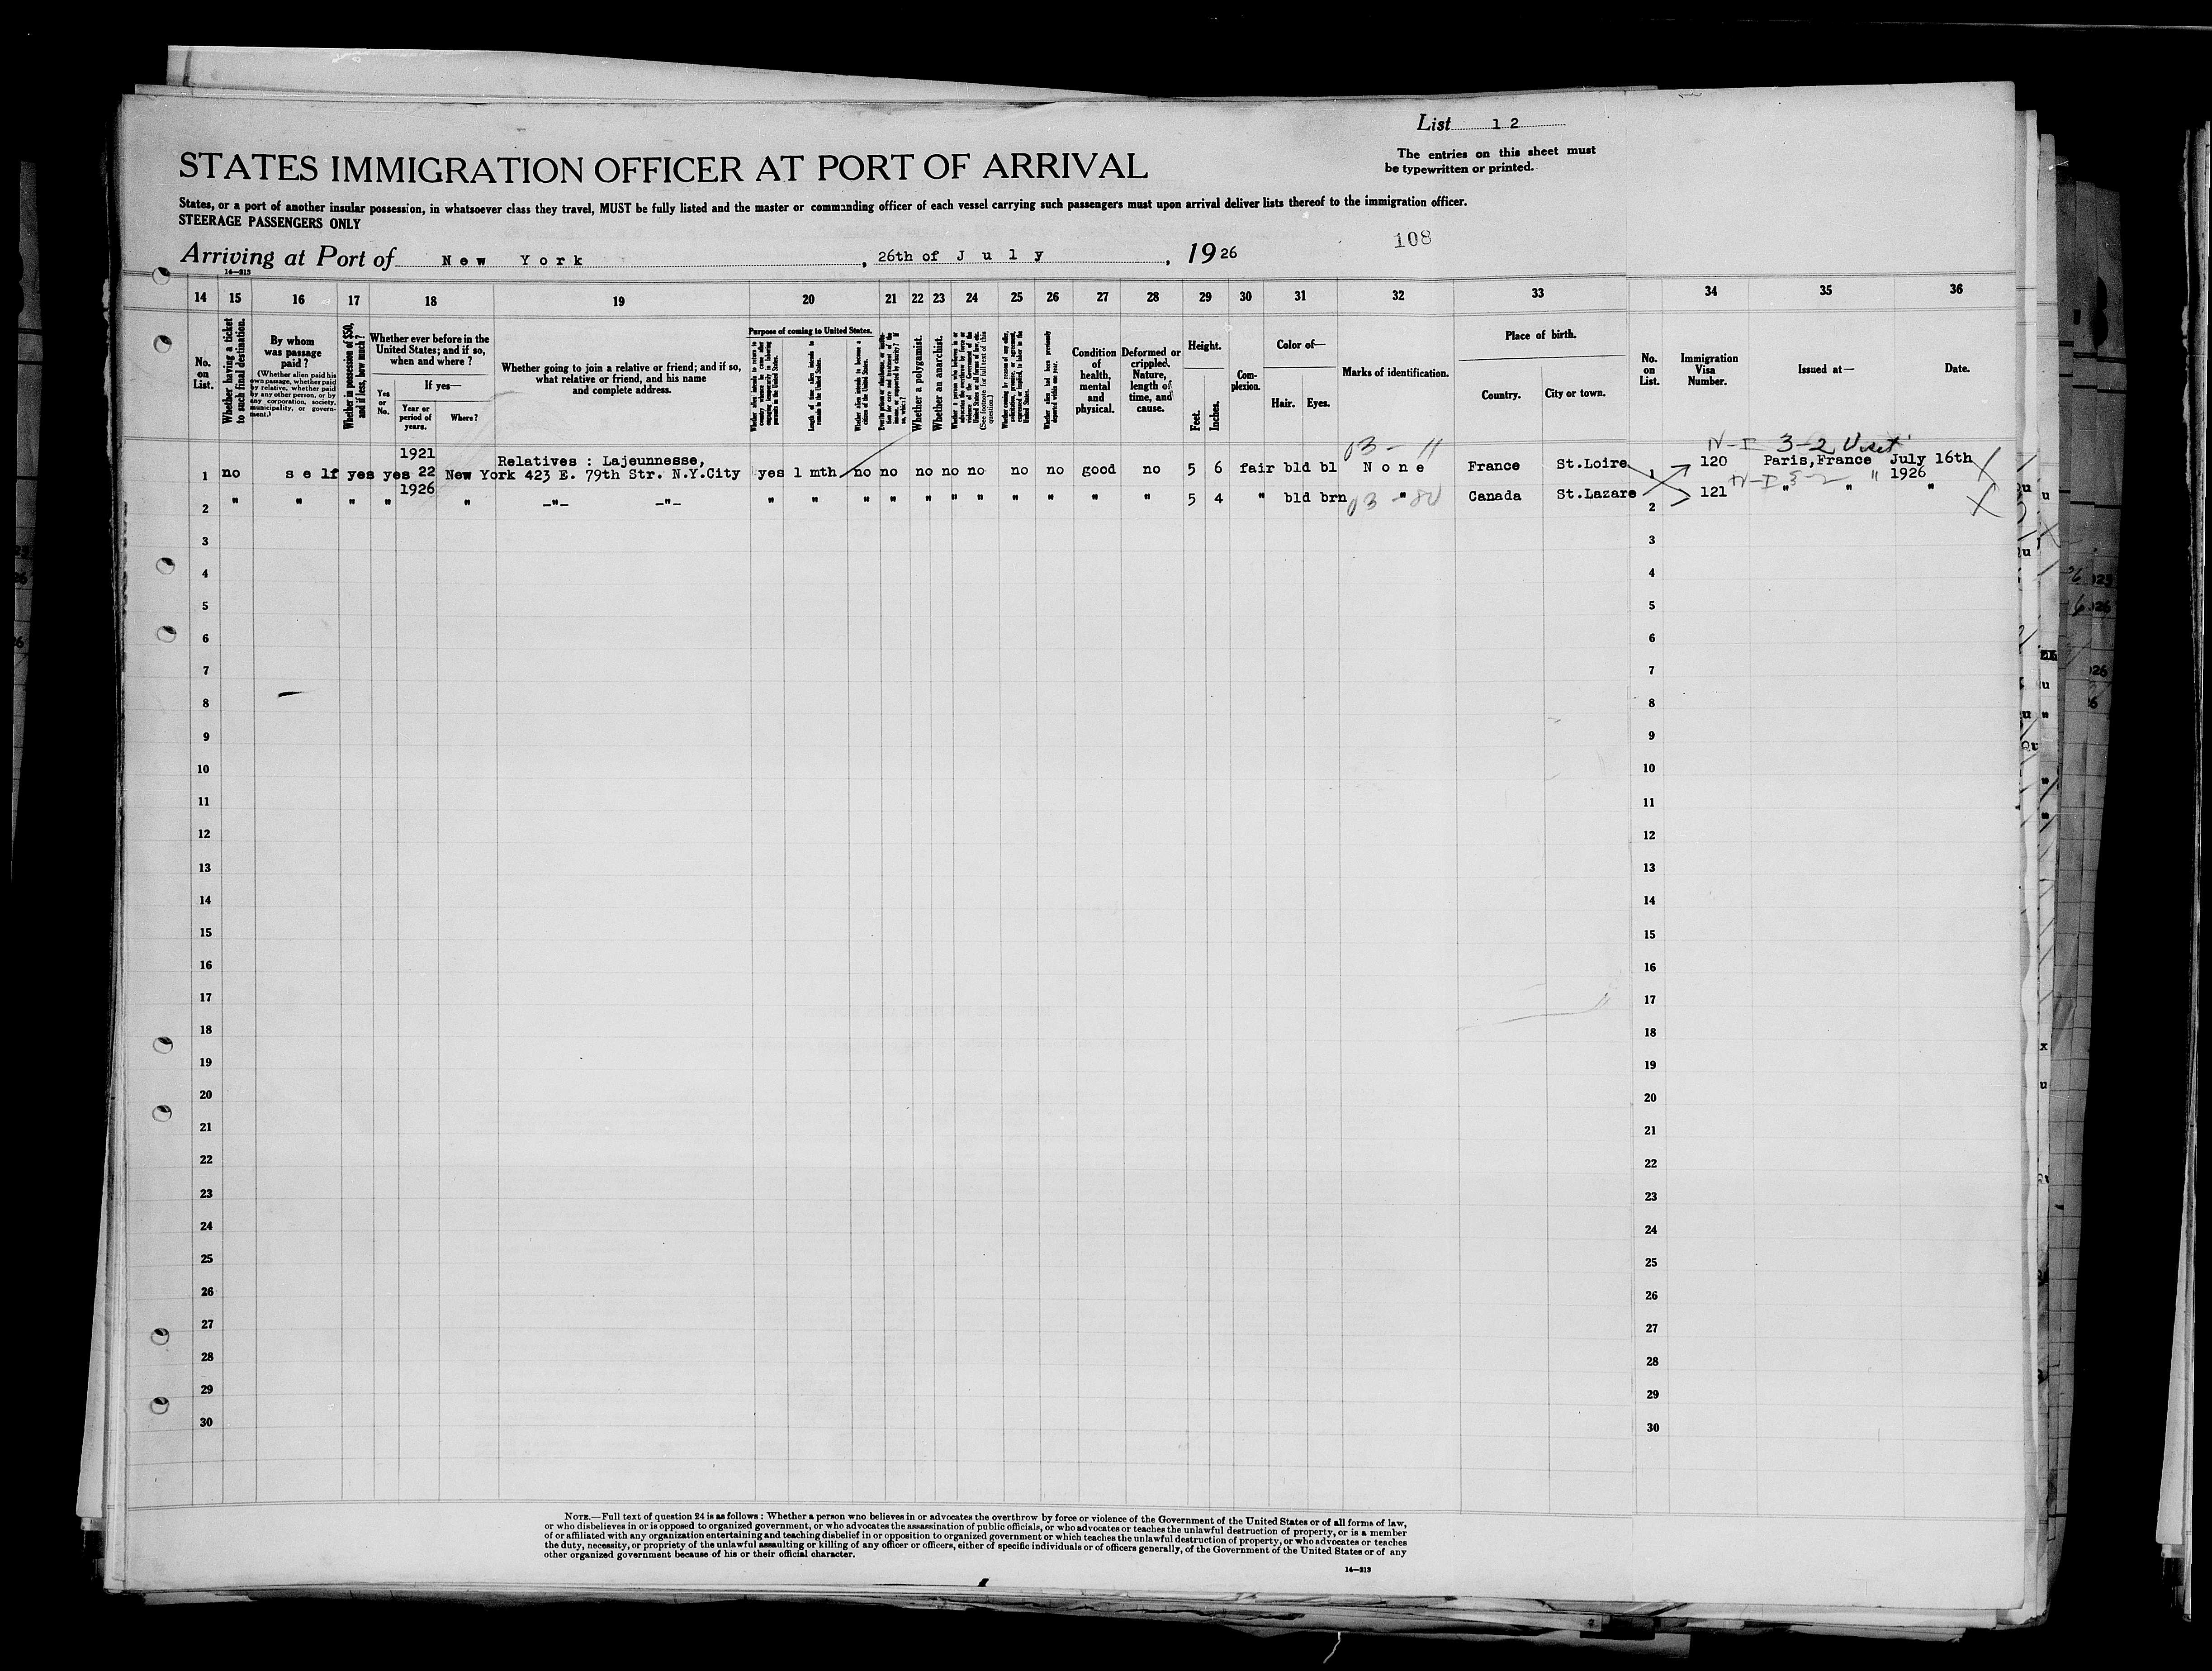 List 12
The entries on this sheet must
be typewritten or printed.
STATES IMMIGRATION OFFICER AT PORT OF ARRIVAL
States, or a port of another insular possession, in whatsoever class they travel, MUST be fully listed and the master or commanding officer of each vessel carrying such passengers must upon arrival deliver lists thereof to the immigration officer.
STEERAGE PASSENGERS ONLY
108
Arriving at Port of New York, 26th of July, 1926
14—213
14 15 16 17 18 19 20 21 22 23 24 25 26 27 28 29 30 31 32 33 34 35 36
No. on List.
Whether having a ticket to such final destination.
By whom was passage paid?
(Whether alien paid his own passage, whether paid by relative, whether paid by any other person, or by any corporation, society, municipality, or government.)
Whether in possession of $50, and if less, how much?
Whether ever before in the United States; and if so, when and where?
Yes or No.
If yes—
Year or period of years.
Where?
Whether going to join a relative or friend; and if so, what relative or friend, and his name and complete address.
Purpose of coming to United States.
Length of time alien intends to remain in the United States.
Whether alien intends to become a citizen of the United States.
Whether a polygamist.
Whether an anarchist.
Condition of health, mental and physical.
Deformed or crippled. Nature, length of time, and cause.
Height.
Feet.
Inches.
Complexion.
Color of—
Hair.
Eyes.
Marks of identification.
Place of birth.
Country.
City or town.
No. on List.
Immigration Visa Number.
Issued at—
Date.
03 - 11
N-I 3-2 Visit
1921
Relatives : Lajeunnesse,
1 no self yes yes 22 New York 423 E. 79th Str. N.Y.City yes 1 mth no no no no no no no good no 5 6 fair bld bl None France St.Loire 1 120 Paris,France July 16th
1926 N-I 3-2 " 1926
2 " " " " " -"- -"- " " " " " " " " " " " 5 4 " bld brn 03 - 80 " Canada St.Lazare 2 121 " " "
3 3
4 4
5 5
6 6
7 7
8 8
9 9
10 10
11 11
12 12
13 13
14 14
15 15
16 16
17 17
18 18
19 19
20 20
21 21
22 22
23 23
24 24
25 25
26 26
27 27
28 28
29 29
30 30
NOTE.—Full text of question 24 is as follows: Whether a person who believes in or advocates the overthrow by force or violence of the Government of the United States or of all forms of law,
or who disbelieves in or is opposed to organized government, or who advocates the assassination of public officials, or who advocates or teaches the unlawful destruction of property, or is a member
of or affiliated with any organization entertaining and teaching disbelief in or opposition to organized government or which teaches the unlawful destruction of property, or who advocates or teaches
the duty, necessity, or propriety of the unlawful assaulting or killing of any officer or officers, either of specific individuals or of officers generally, of the Government of the United States or of any
other organized government because of his or their official character.
14—213